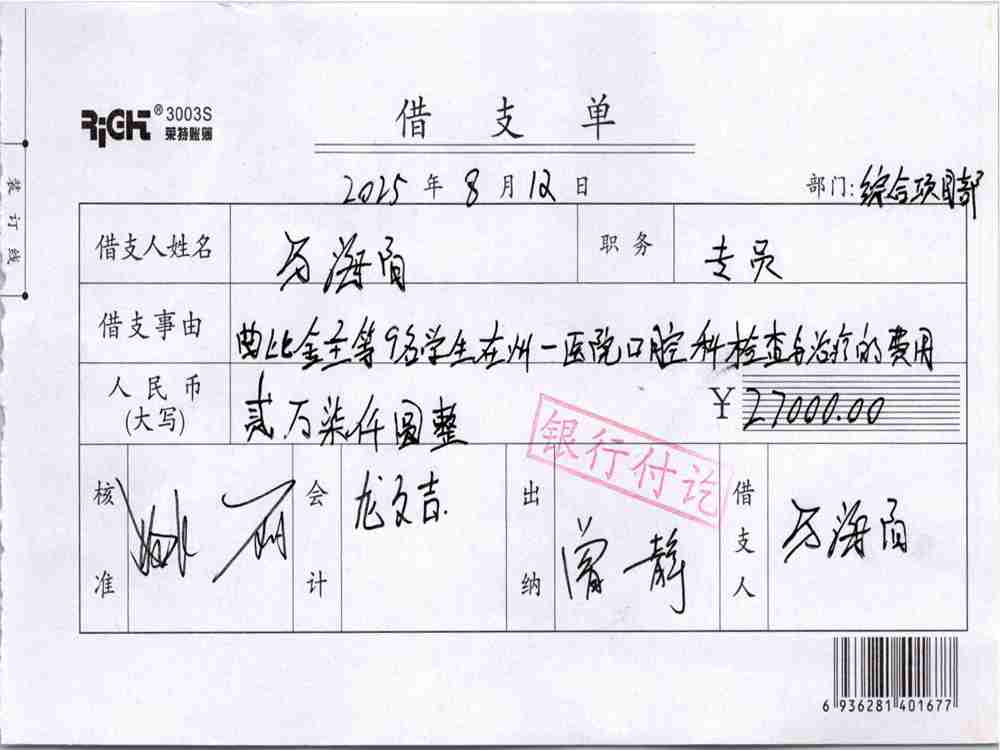 RiGHT® 3003S
莱特账簿
借支单
2025 年 8 月 12 日
部门: 综合项目部
装订线
借支人姓名 马海阳 职务 专员
借支事由 曲比金圣等9名学生在州一医院口腔科检查与治疗的费用
人民币 (大写) 贰万柒仟圆整 ¥ 27000.00
银行付讫
核准 会计 龙文吉 出纳 曾静 借支人 马海阳
6 936281 401677